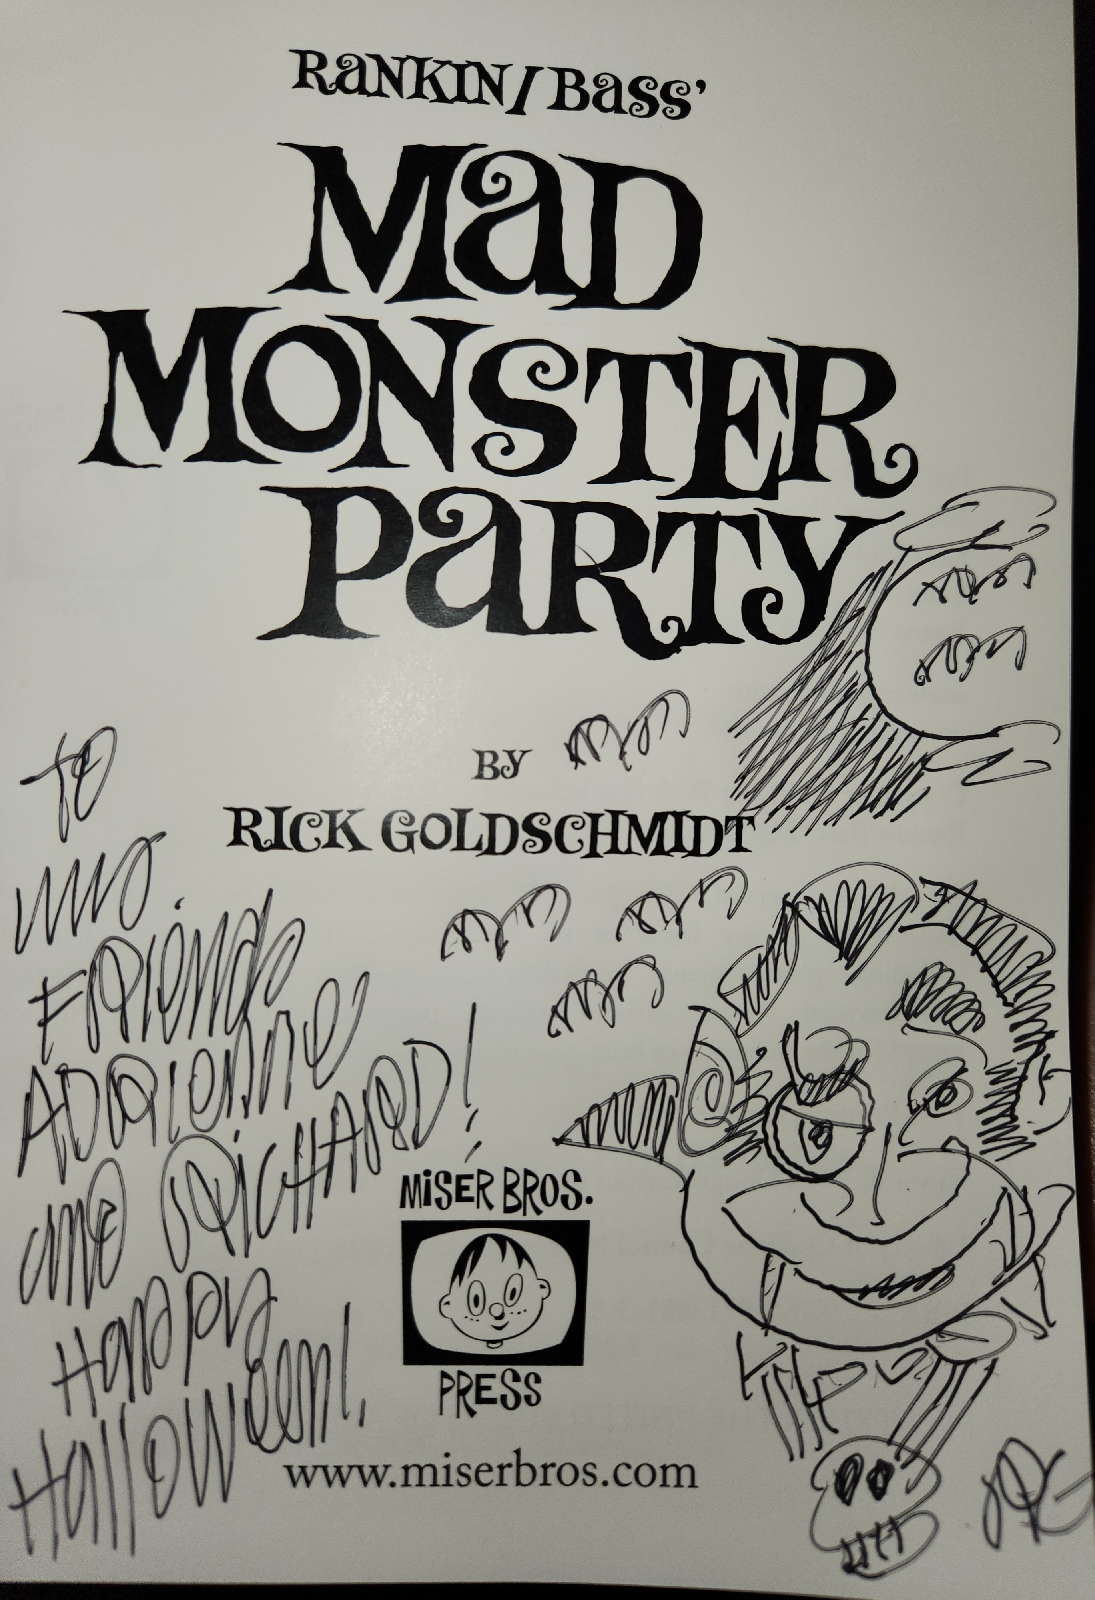 RANKIN/BASS'
MAD
MONSTER
PARTY
BY
RICK GOLDSCHMIDT
TO
my
FRiends
ADRIONNE
and RICHARD!
HAPPY
Halloween!
MiSER BROS.
PRESS
www.miserbros.com
RG